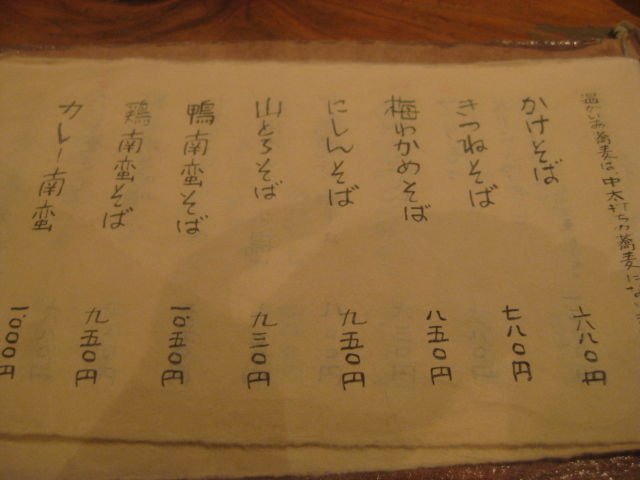 温かいお蕎麦は中太打ちの蕎麦にな
かけそば 六八〇円
きつねそば 七八〇円
梅わかめそば 八五〇円
にしんそば 九五〇円
山とろそば 九三〇円
鴨南蛮そば 一〇五〇円
鶏南蛮そば 九五〇円
カレー南蛮 一〇〇〇円